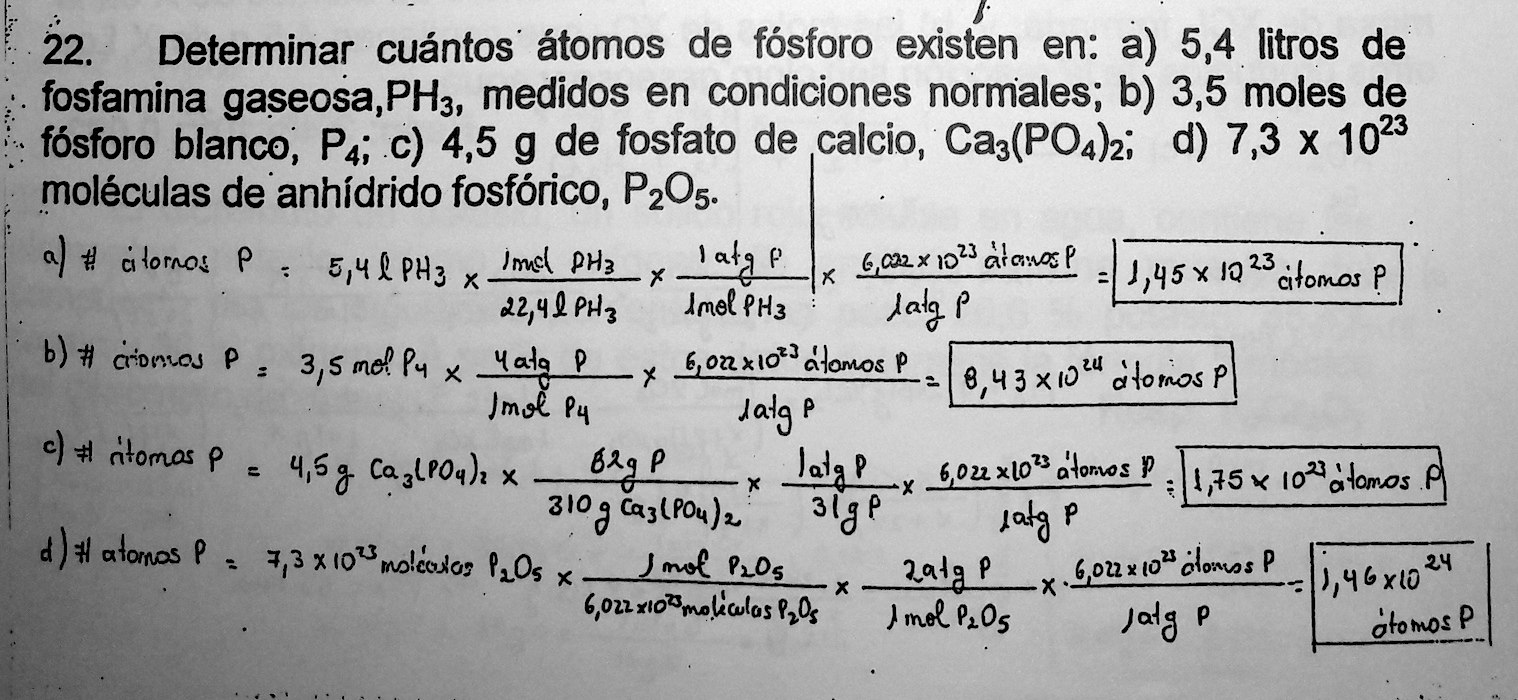 22. Determinar cuántos átomos de fósforo existen en: a) 5,4 litros de
fosfamina gaseosa, PH₃, medidos en condiciones normales; b) 3,5 moles de
fósforo blanco, P₄; c) 4,5 g de fosfato de calcio, Ca₃(PO₄)₂; d) 7,3 x 10²³
moléculas de anhídrido fosfórico, P₂O₅.
a) # átomos P = 5,4 l PH₃ x 1mol PH₃ / 22,4 l PH₃ x 1 atg P / 1mol PH₃ x 6,022 x 10²³ átomos P / 1atg P = 1,45 x 10²³ átomos P
b) # átomos P = 3,5 mol P₄ x 4 atg P / 1mol P₄ x 6,022 x 10²³ átomos P / 1atg P = 8,43 x 10²⁴ átomos P
c) # átomos P = 4,5 g Ca₃(PO₄)₂ x 62g P / 310 g Ca₃(PO₄)₂ x 1atg P / 31g P x 6,022 x 10²³ átomos P / 1atg P = 1,75 x 10²³ átomos P
d) # atomos P = 7,3 x 10²³ moléculas P₂O₅ x 1 mol P₂O₅ / 6,022 x 10²³ moléculas P₂O₅ x 2atg P / 1 mol P₂O₅ x 6,022 x 10²³ átomos P / 1atg P = 1,46 x 10²⁴ átomos P